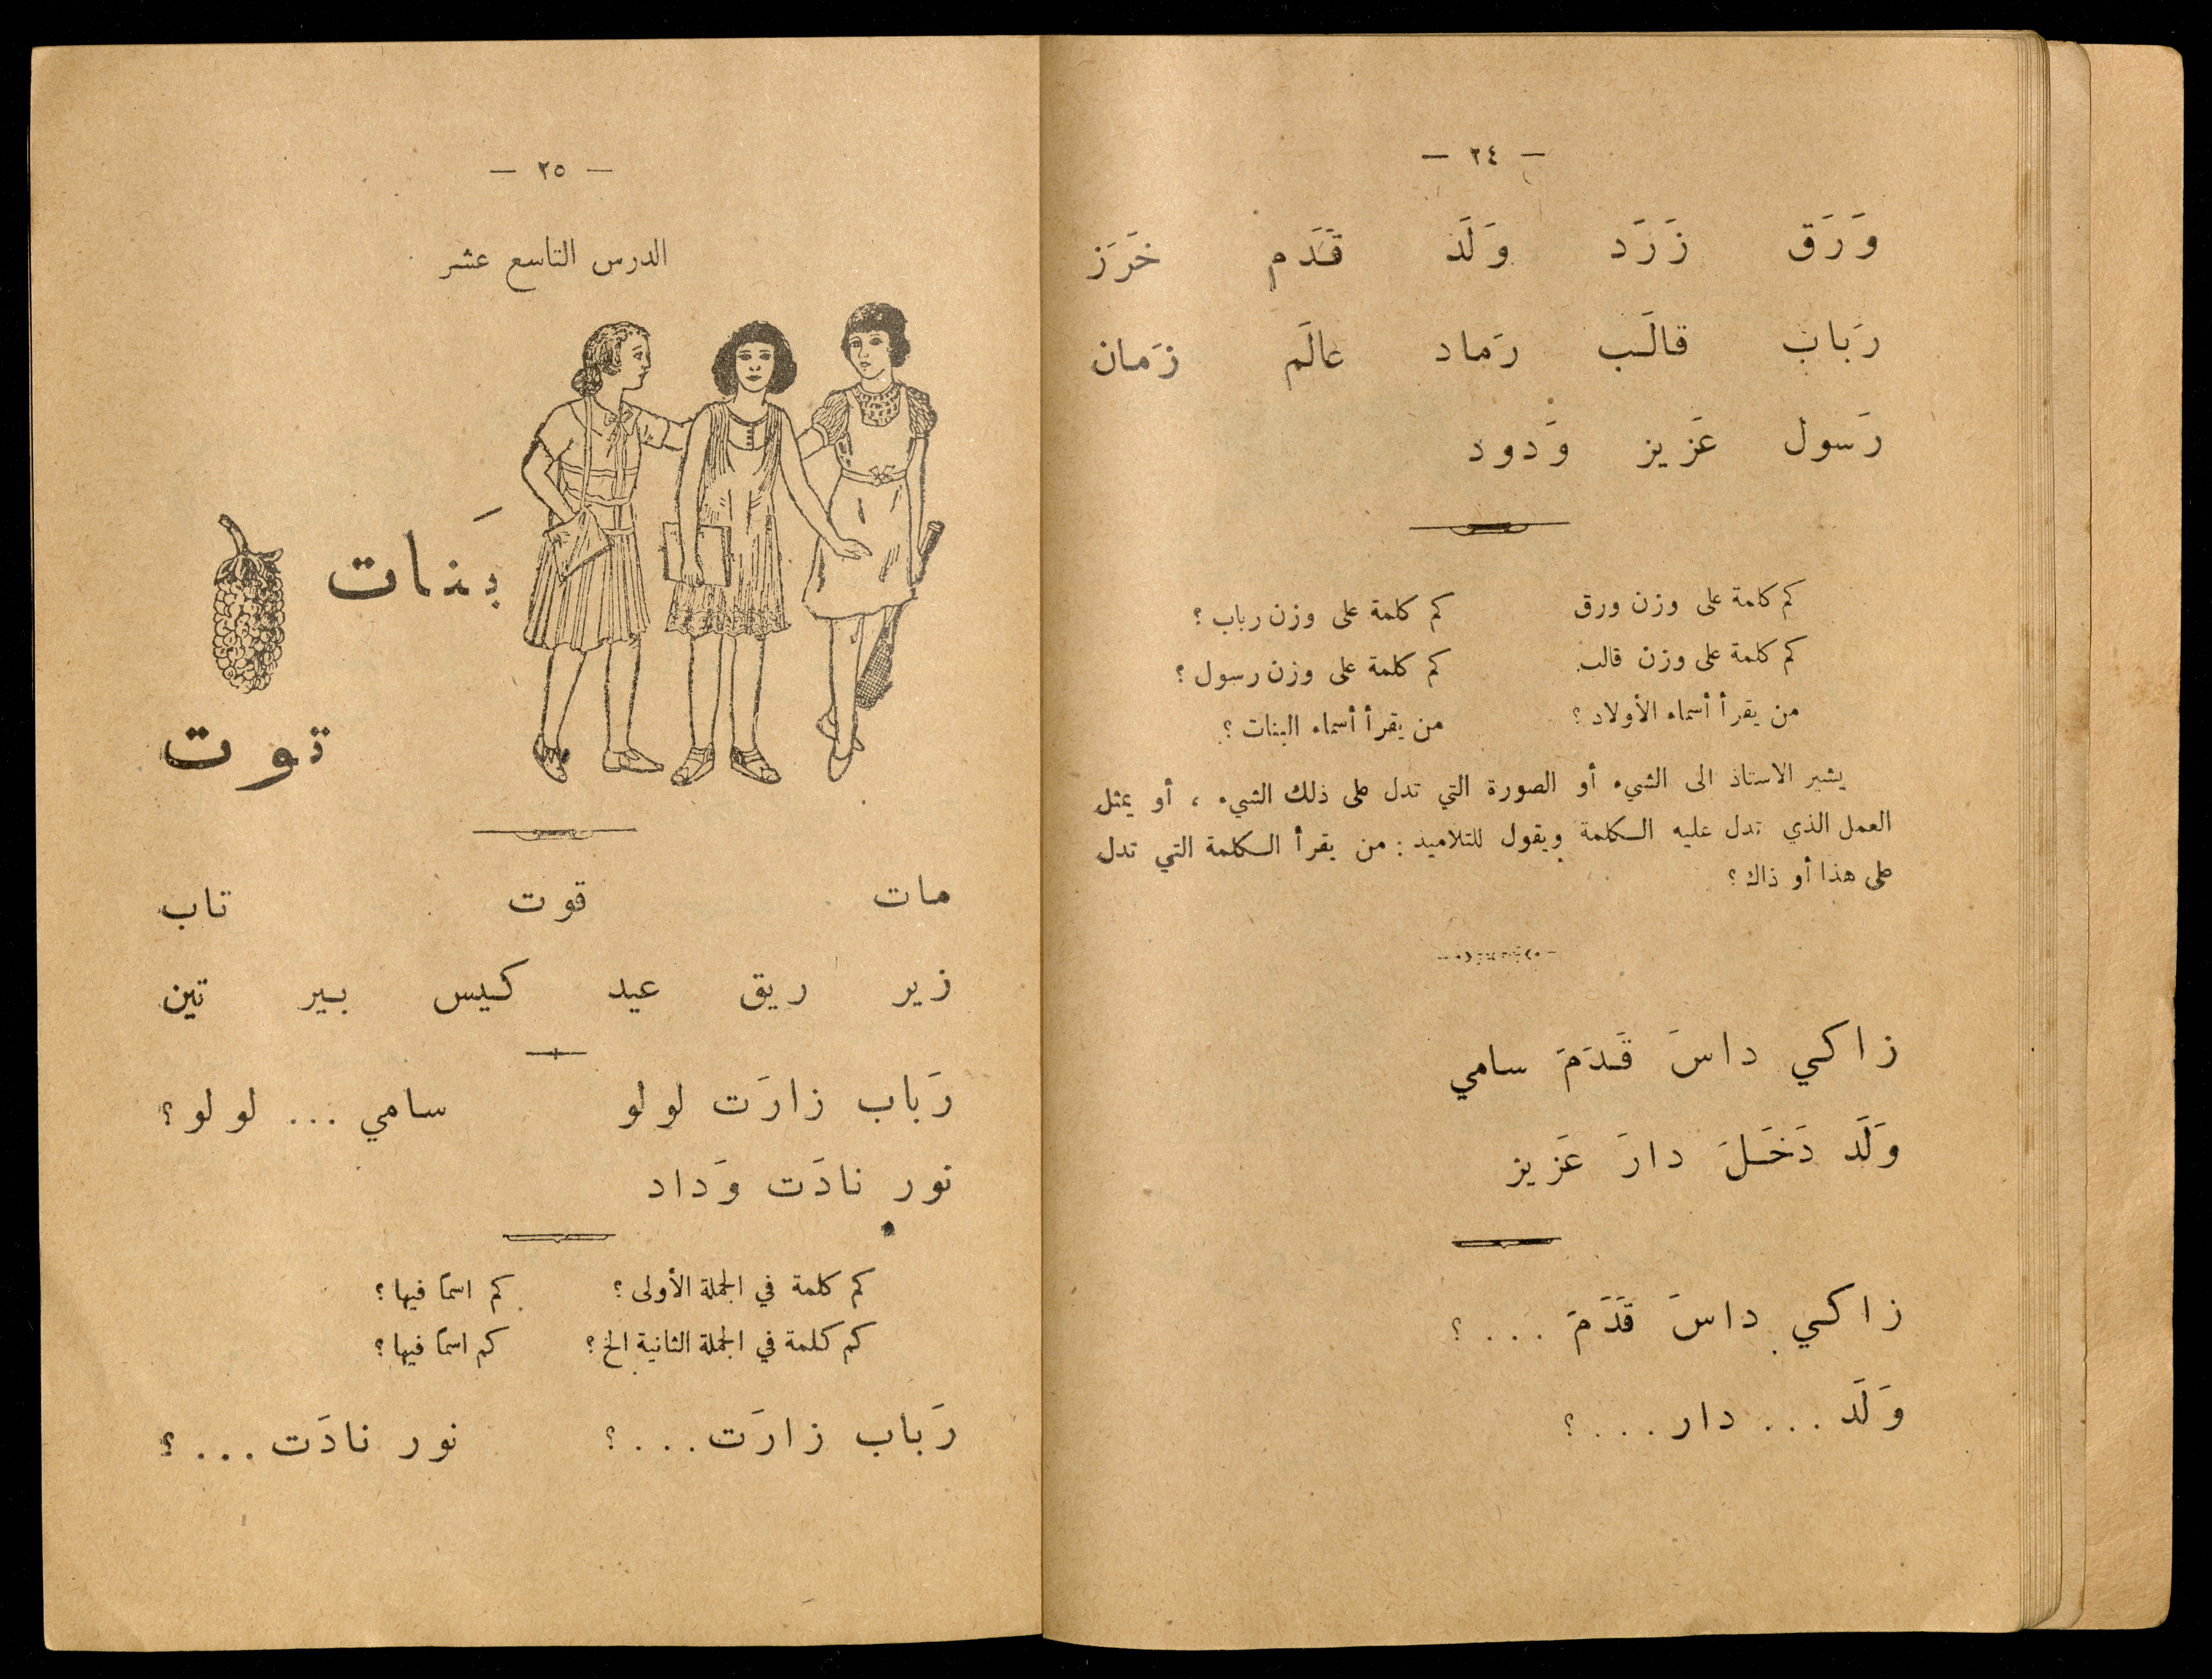 — ٢٤ —
وَرَق زَرَد وَلَد قَدَم خَرَز
رَباب قالَب رَماد عالَم زَمان
رَسول عَزيز وَدود
كم كلمة على وزن ورق كم كلمة على وزن رباب ؟
كم كلمة على وزن قالب كم كلمة على وزن رسول ؟
من يقرأ أسماء الأولاد ؟ من يقرأ أسماء البنات ؟
يشير الاستاذ الى الشيء أو الصورة التي تدل على ذلك الشيء ، أو يمثل
العمل الذي تدل عليه الكلمة ويقول للتلاميذ : من يقرأ الكلمة التي تدل
على هذا أو ذاك ؟
زاكي داسَ قَدَمَ سامي
وَلَد دَخَلَ دارَ عَزيز
زاكي داسَ قَدَمَ ... ؟
وَلَد ... دار ... ؟
— ٢٥ —
الدرس التاسع عشر
بَنات
توت
مات قوت تاب
زير ريق عيد كيس بير تين
رَباب زارَت لولو سامي ... لولو ؟
نور نادَت وَداد
كم كلمة في الجملة الأولى ؟ كم اسمًا فيها ؟
كم كلمة في الجملة الثانية الخ ؟ كم اسمًا فيها ؟
رَباب زارَت ... ؟ نور نادَت ... ؟